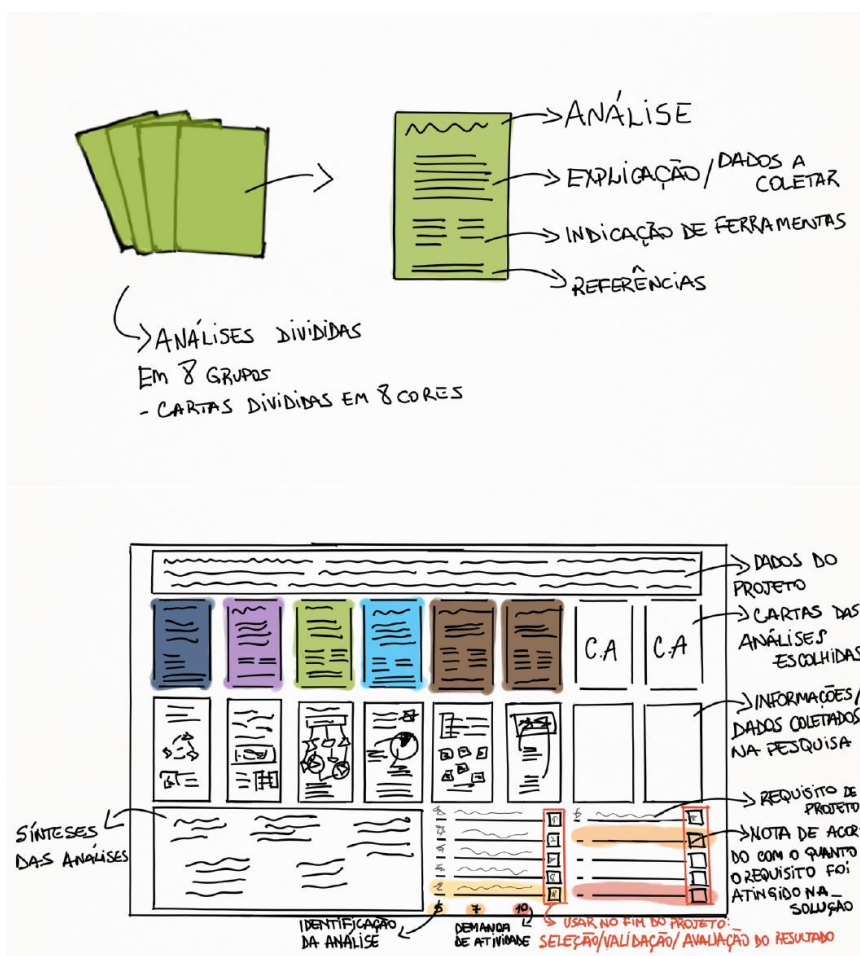 ANÁLISE
EXPLICAÇÃO/DADOS A
COLETAR
INDICAÇÃO DE FERRAMENTAS
REFERÊNCIAS
ANÁLISES DIVIDIDAS
EM 8 GRUPOS
- CARTAS DIVIDIDAS EM 8 CORES
DADOS DO
PROJETO
CARTAS DAS
ANÁLISES
ESCOLHIDAS
C.A C.A
INFORMAÇÕES/
DADOS COLETADOS
NA PESQUISA
REQUISITO DE
PROJETO
NOTA DE ACOR
DO COM O QUANTO
O REQUISITO FOI
ATINGIDO NA
SOLUÇÃO
SÍNTESES
DAS ANÁLISES
7 10
IDENTIFICAÇÃO
DA ANÁLISE
DEMANDA
DE ATIVIDADE
USAR NO FIM DO PROJETO:
SELEÇÃO/VALIDAÇÃO/AVALIAÇÃO DO RESULTADO